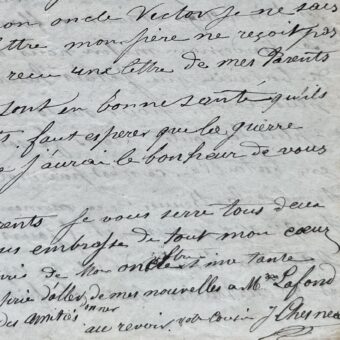 mon oncle Victor je ne sais
lettre mon père ne reçoit pas
recu une lettre de mes Parents
sont en bonne santé qu'ils
faut esperer que la guerre
j'aurai le bonheur de vous
je vous serre tous deux
embrasse de tout mon cœur
de mon oncle et ma tante
d'aller donner de mes nouvelles a Mme Lafond
des amitiés
au revoir votre Cousin J Chesneau